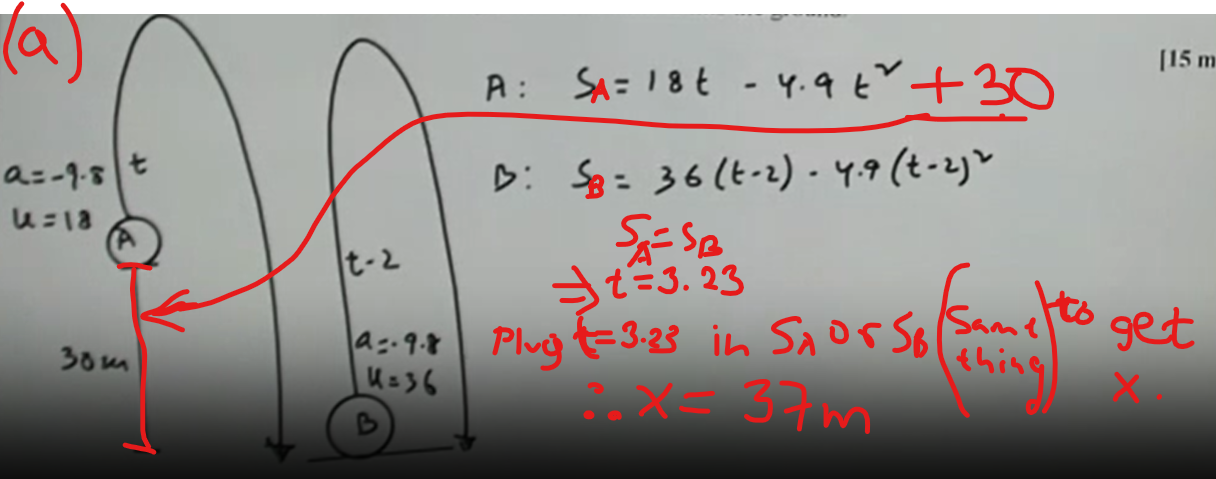 (a)
[15 m
A: S_A = 18t - 4.9t² + 30
B: S_B = 36(t-2) - 4.9(t-2)²
S_A = S_B
⇒ t = 3.23
Plug t = 3.23 in S_A or S_B (same thing) to get x.
∴ x = 37m
a = -9.8
t
u = 18
A
30m
t-2
a = -9.8
u = 36
B